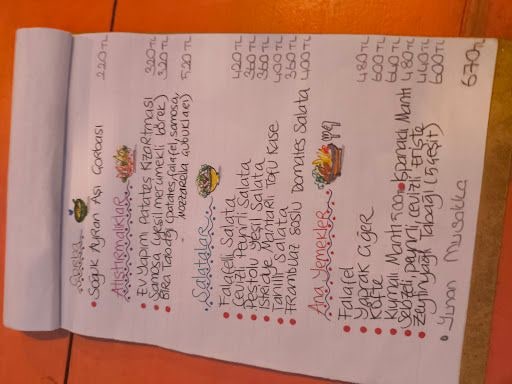 Çorba
• Soğuk Ayran Aşı Çorbası 220TL
Atıştırmalıklar
• Ev Yapımı Patates Kızartması 320TL
• Samosa (yeşil mercimekli börek) 320TL
• Bira Tabağı (Patates, falafel, samosa, mozzarella çubukları) 520TL
Salatalar
• Falafelli Salata 420TL
• Cevizli Peynirli Salata 360TL
• Pestolu Yeşil Salata 360TL
• İstiridye Mantarlı Tofu Kase 400TL
• Tahinli Salata 360TL
• Frambuaz Soslu Domates Salata
Ana Yemekler
• Falafel 480TL
• Yaprak Ciğer 600TL
• Köfte 640TL
• Kıymalı Mantı 500 • Ispanaklı Mantı 480TL
• Sebzeli, peynirli, cevizli erişte 440TL
• Zeytinyağı Tabağı (5 çeşit) 600TL
• Yunan Musakka 670TL